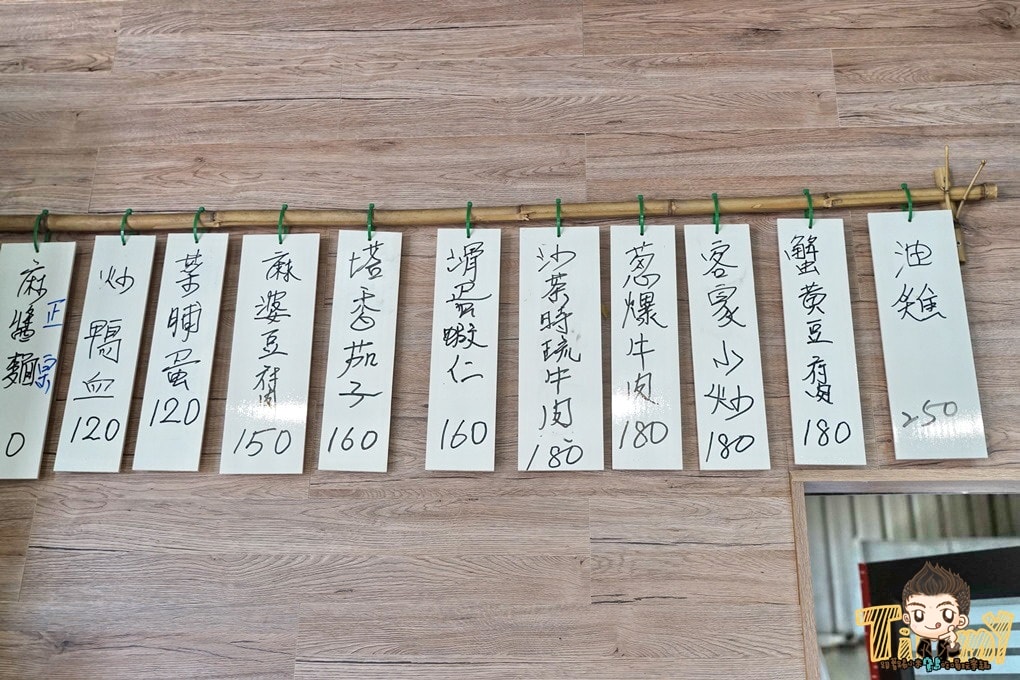 麻醬麵
正宗
0
炒鴨血
120
菜脯蛋
120
麻婆豆腐
150
塔香茄子
160
滑蛋蝦仁
160
沙茶時蔬牛肉
180
蔥爆牛肉
180
客家小炒
180
蟹黃豆腐
180
油雞
250
Timmy